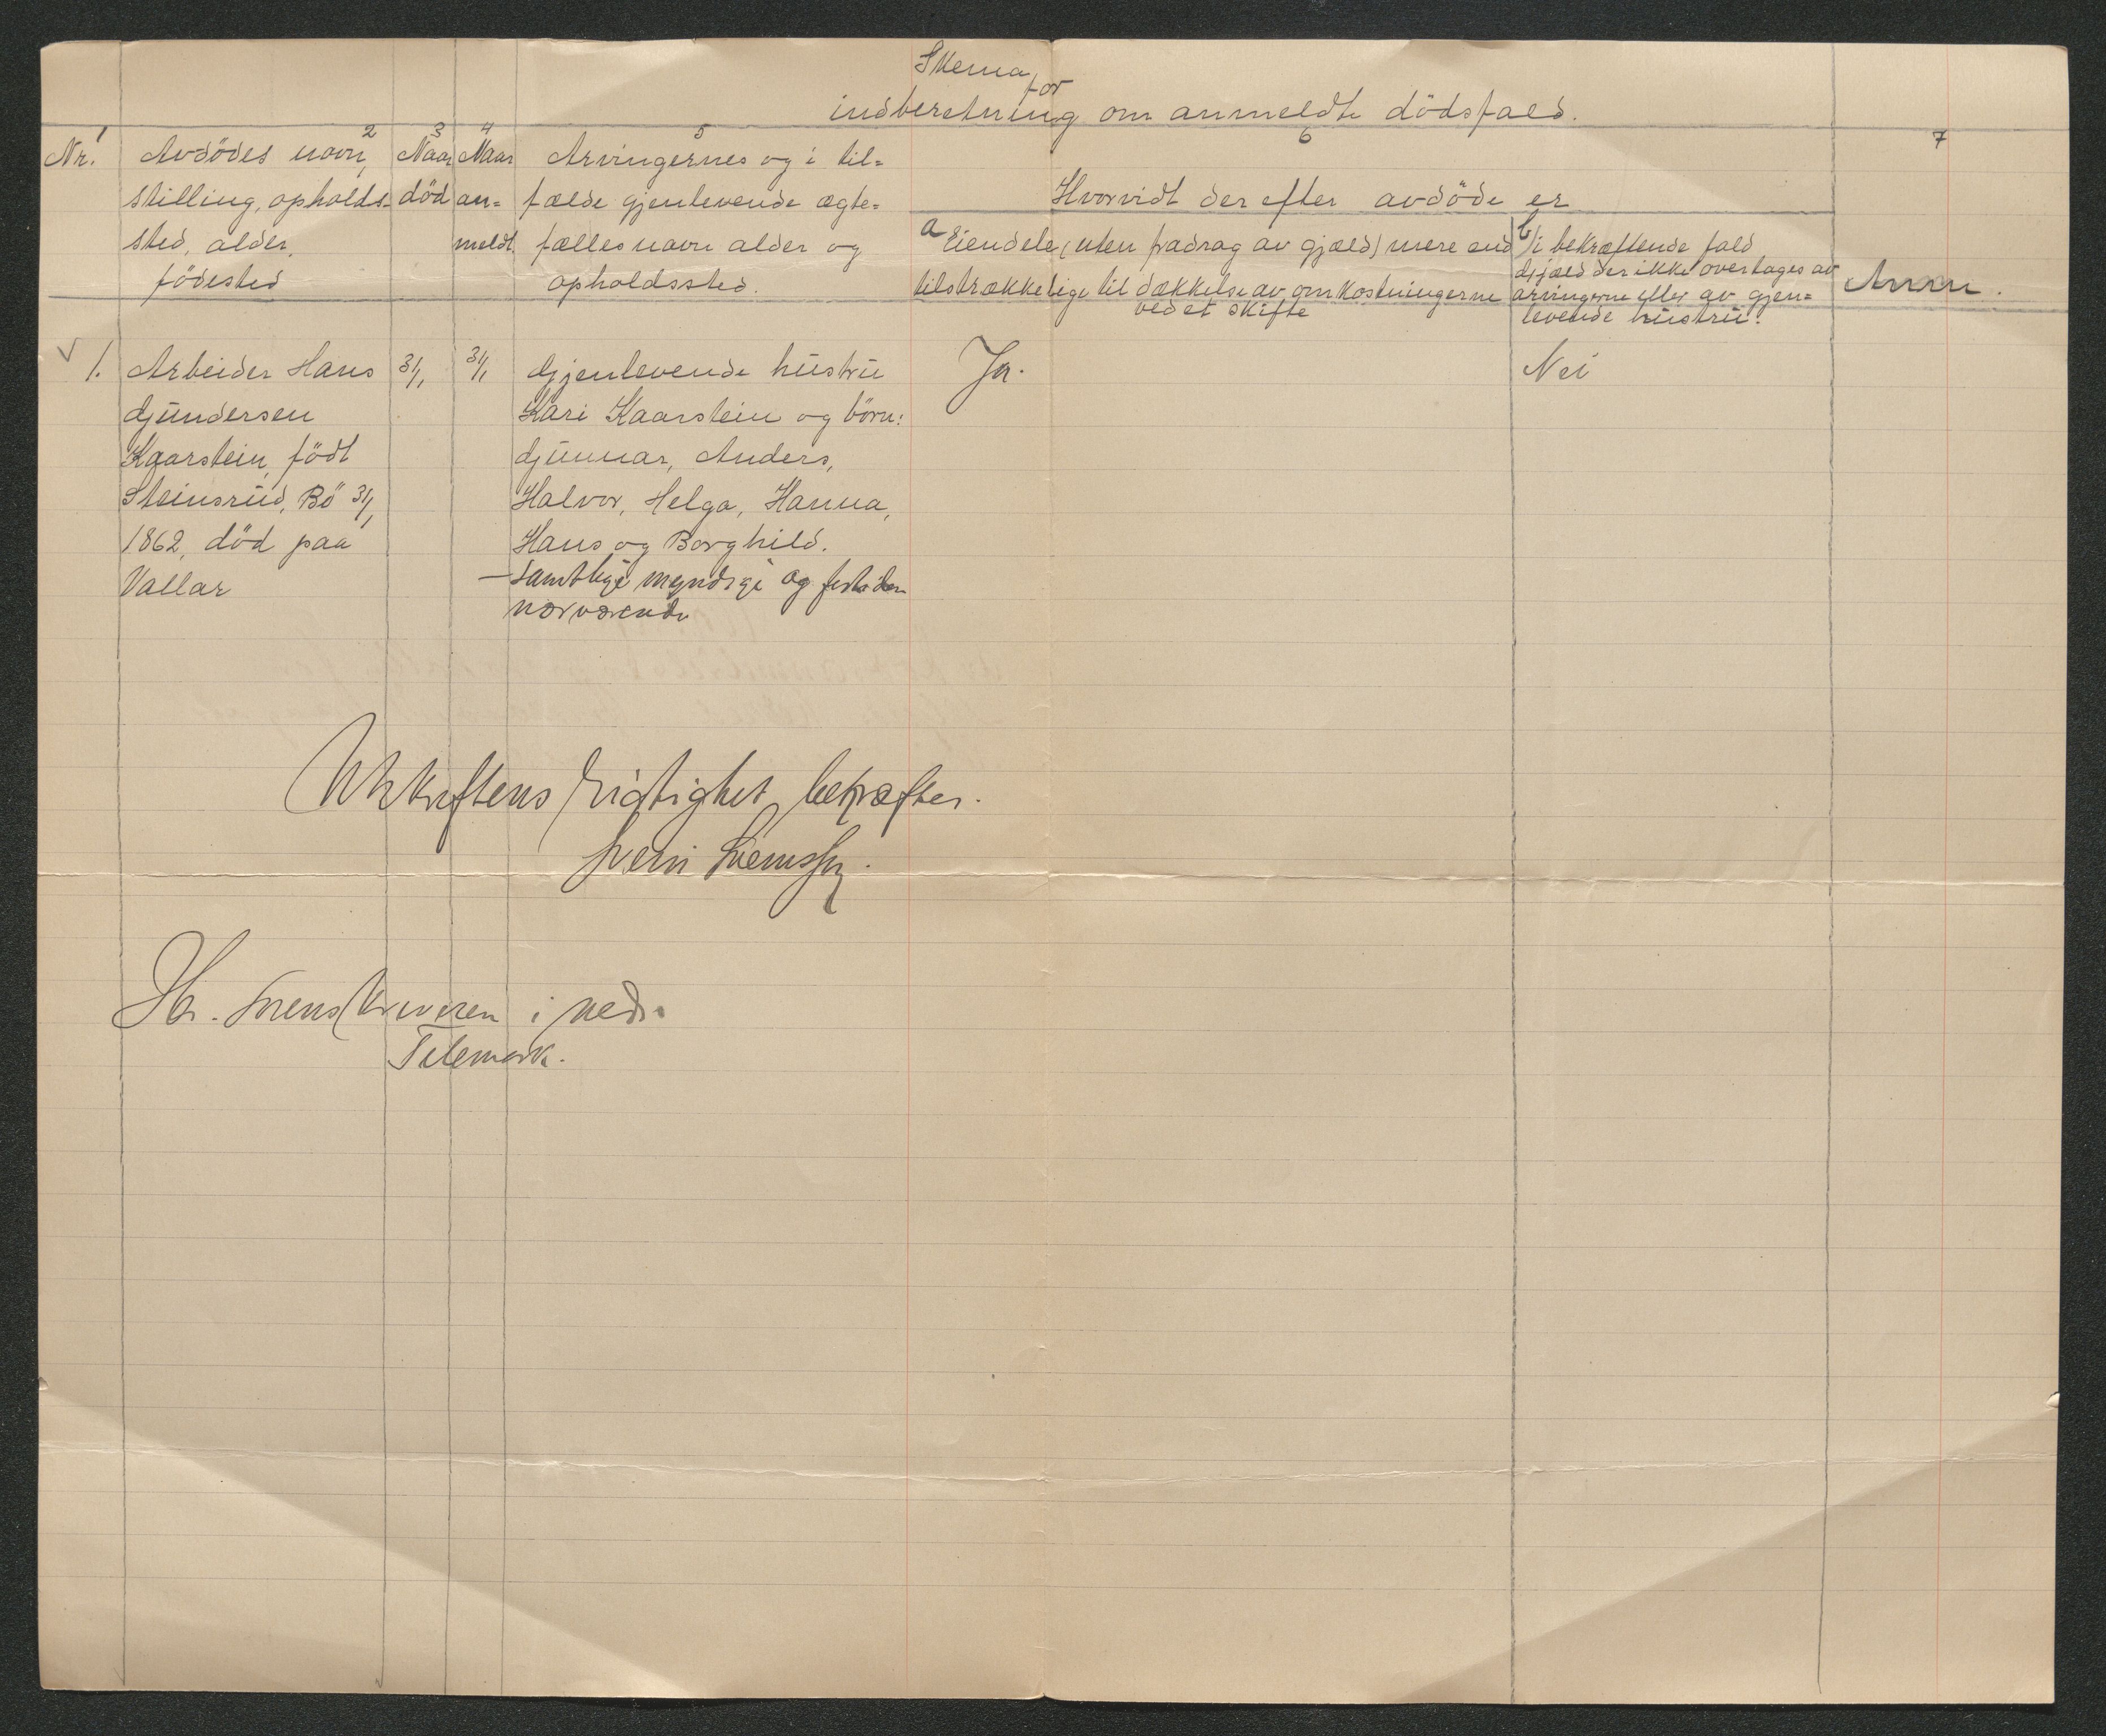 Skema
for
indberetning om anmeldte dödsfald.
1 2 3 4 5 6 7
Nr. Avdödes navn, stilling, opholds-
sted, alder,
födested
Naar
död
Naar
an=
meldt.
Arvingernes og i til=
fælde gjenlevende ægte=
fælles navn alder og
opholdssted.
Hvorvidt der efter avdöde er
a Eiendele (uten fradrag av gjæld) mere end
tilstrækkelige til dækkelse av omkostningerne
ved et skifte
b i bekræftende fald
Gjæld der ikke overtages av
arvingerne eller av gjen=
levende hustru.
Anm.
✓ 1. Arbeider Hans
Gundersen
Kaarstein, födt
Steinsrud, Bö 31/1
1862, död paa
Vallar
31/1
31/1
Gjenlevende hustru
Kari Kaarstein og börn:
Gunnar, Anders,
Halvor, Helga, Hanna,
Hans og Borghild.
— Samtlige myndige og
nærværende
Ja.
Nei
Utskriftens rigtighet bekræfter.
Hr. Sorenskriveren i nedr.
Telemark.